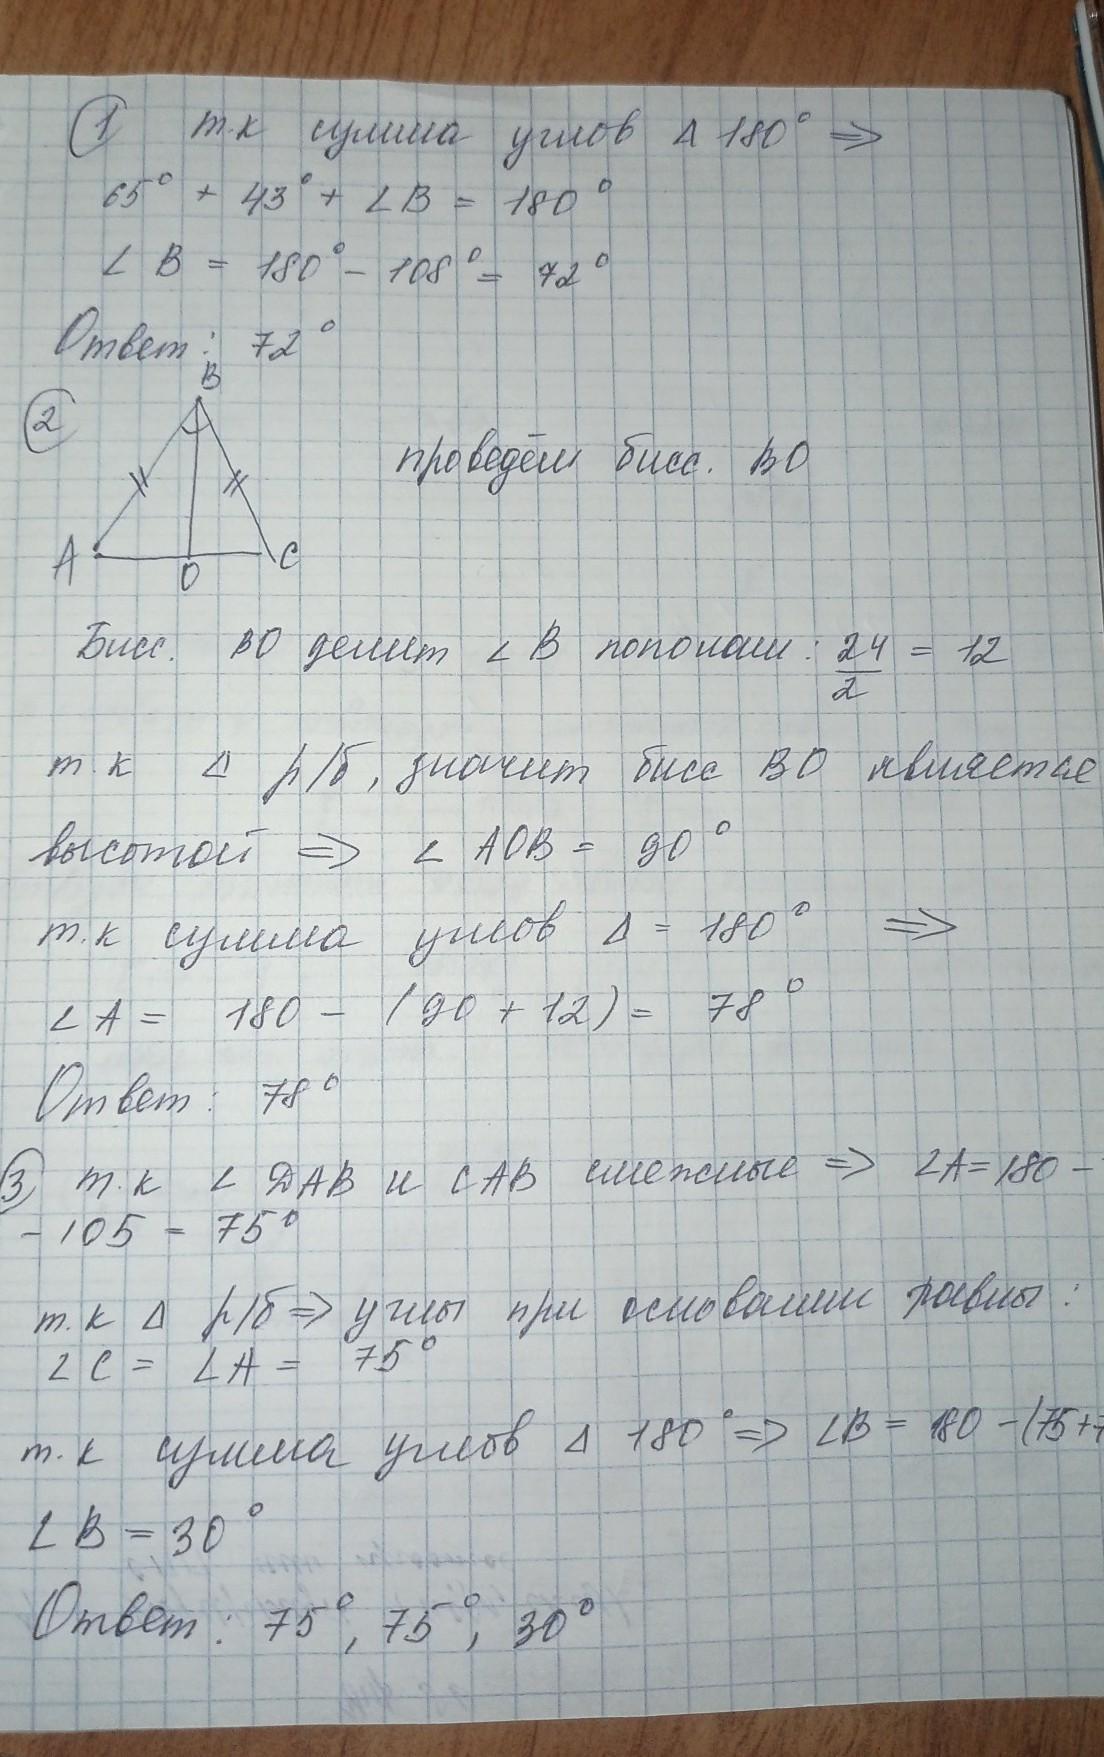 1 т.к сумма углов Δ 180° ⇒
65° + 43° + ∠B = 180°
∠ B = 180° - 108° = 72°
Ответ: 72°
2
B
A
O
C
проведём бисс. BO
Бисс. BO делит ∠ B пополам: 24/2 = 12
т.к Δ р/б, значит бисс BO является
высотой ⇒ ∠ AOB = 90°
т.к сумма углов Δ = 180° ⇒
∠ A = 180 - (90 + 12) = 78°
Ответ: 78°
3 т.к ∠ DAB и CAB смежные ⇒ ∠A = 180 -
- 105 = 75°
т.к Δ р/б ⇒ углы при основании равны:
∠ C = ∠A = 75°
т.к сумма углов Δ 180° ⇒ ∠B = 180 - (75+7
∠ B = 30°
Ответ: 75°, 75°, 30°